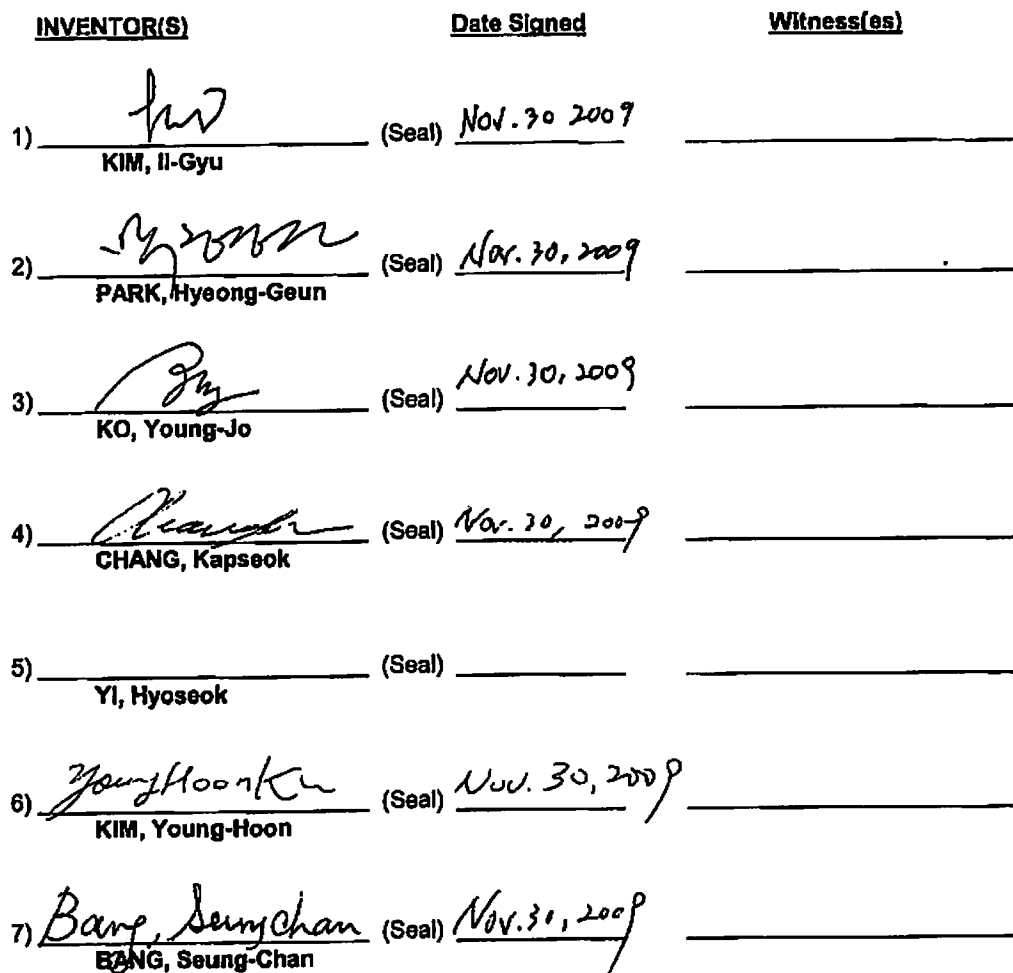 INVENTOR(S) Date Signed Witness(es)
1) (Seal) Nov. 30 2009
KIM, Il-Gyu
2) (Seal) Nov. 30, 2009
PARK, Hyeong-Geun
3) (Seal) Nov. 30, 2009
KO, Young-Jo
4) (Seal) Nov. 30, 2009
CHANG, Kapseok
5) (Seal)
YI, Hyoseok
6) (Seal) Nov. 30, 2009
KIM, Young-Hoon
7) Bang, Seungchan (Seal) Nov. 30, 2009
BANG, Seung-Chan